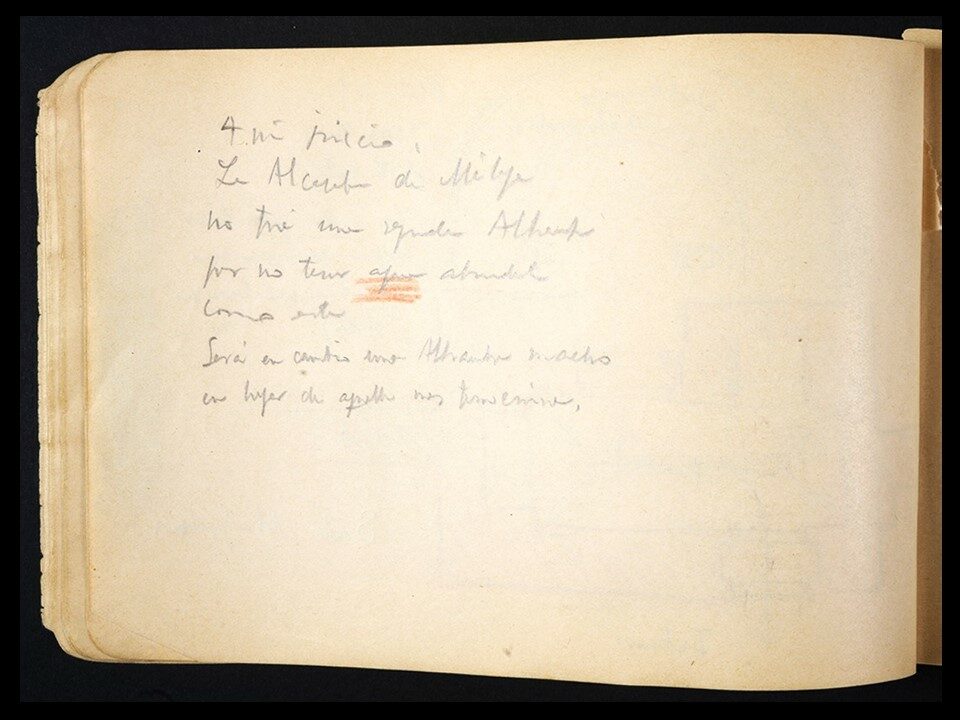 A mi juicio,
La Alcazaba de Málaga
no fué una segunda Alhambra
por no tener agua abundante
como esta
Será en cambio una Alhambra macho
en lugar de aquella mas femenina.